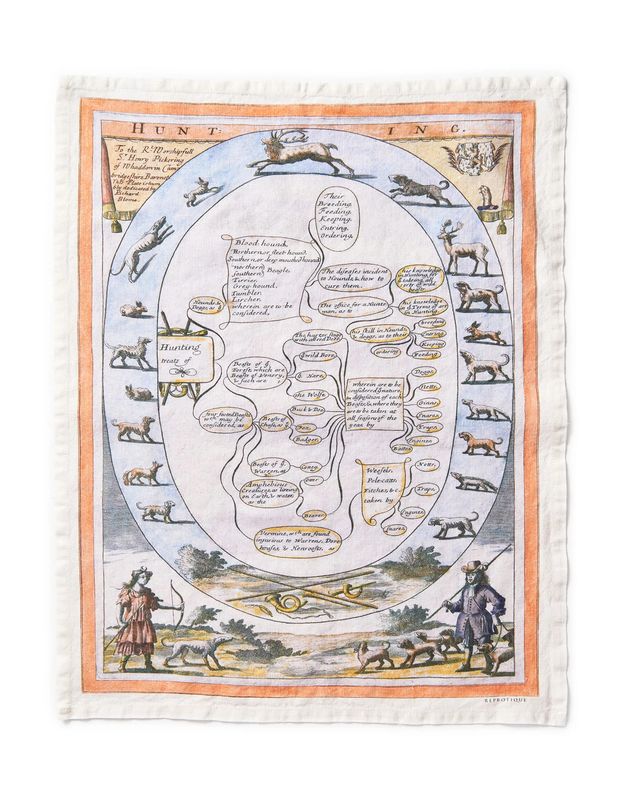 HUNT ING.
To the Rt. Worshipfull
Sr. Henry Pickering
of Whaddon in Cam
bridgeshire Baronet
This Plate is hum
bly dedicated by
Richard
Blome.
Their
Breeding.
Feeding.
Keeping.
Entring.
Ordering.
Blood hound,
Northern, or fleet hound,
Southern, or deep mouthed hound
northern
southern Beagle,
Terrier,
Grey hound,
Tumbler,
Lurcher,
wherein are to be
considered,
The diseases incident
to Hounds, & how to
cure them.
The office for a Hunts
man, as to
his knowledge
in Hunting, &
taking all
sorts of wild
his knowledge
in ye Terms of art
in Hunting
his skill in Hounds
& doggs, as to their
breeding
Entring
Keeping
Feeding
ordering
Hounds &
Dogs, as ye
Hunting
treats of
Beasts of ye
Forest, which are
Beasts of Venery,
& such are ye
The hart or stagg
with all red Deer
ye wild Bore
ye Hare
the Wolfe
four footed Beasts
wch may be
considered, as
Beasts of ye
Chase, as ye
Buck & Doe
Fox
Badger
wherein are to be
considered ye nature,
& disposition of each
Beast, & where they
are to be taken at
all seasons of the
year by
Doggs
Netts
Ginns
Snares
Traps
Engines
Baites
Beasts of ye
Warren, as
Coney
Amphibious
Creatures, as liveing
on Earth & water,
as the
Otter
Beaver
Weesels,
Pole-catts
Fitches, & c.
taken by
Netts
Traps
Engines
Snares
Vermine, wch are found
injurious to Warrens, Dove
houses, & Henroosts, as
REPROTIQUE